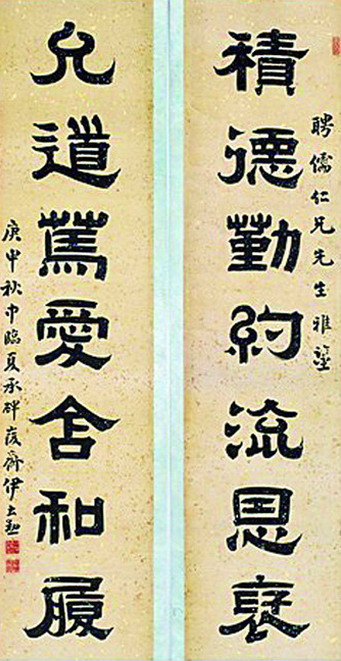 聘儒仁兄先生雅鑒
積德勤約流恩裒
允道篤愛含和履
庚申秋中臨夏承碑峻齋伊立勳